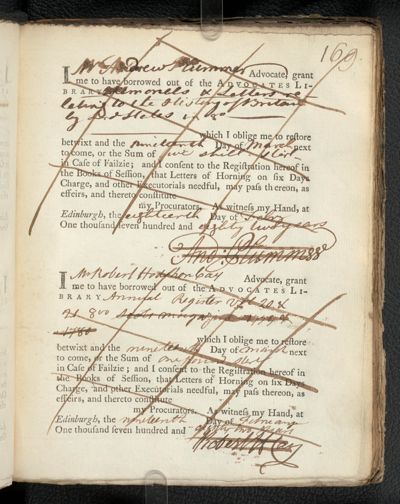 169.
I Mr Andrew Plummer Advocate, grant
me to have borrowed out of the ADVOCATES LI-
BRARY Memorells & Letters re-
lating to the History of Britain
by
which I oblige me to restore
betwixt and the nineteenth Day of March next
to come, or the Sum of five shill: Ster:
in Case of Failzie; and I consent to the Registration hereof in
the Books of Session, that Letters of Horning on six Days
Charge, and other Executorials needful, may pass thereon, as
effeirs, and thereto constitute
my Procurators. As witness my Hand, at
Edinburgh, the eighteenth Day of Feby
One thousand seven hundred and eighty two years
And: Plummer
I Mr Robert Hodshon Cay Advocate, grant
me to have borrowed out of the ADVOCATES LI-
BRARY Annual Register Vol 20 &
21 8vo
1781
which I oblige me to restore
betwixt and the nineteenth Day of March next
to come, or the Sum of one pound Ster:
in Case of Failzie; and I consent to the Registration hereof in
the Books of Session, that Letters of Horning on six Days
Charge, and other Executorials needful, may pass thereon, as
effeirs, and thereto constitute
my Procurators. As witness my Hand, at
Edinburgh, the nineteenth Day of February
One thousand seven hundred and eighty two years
Robert H Cay